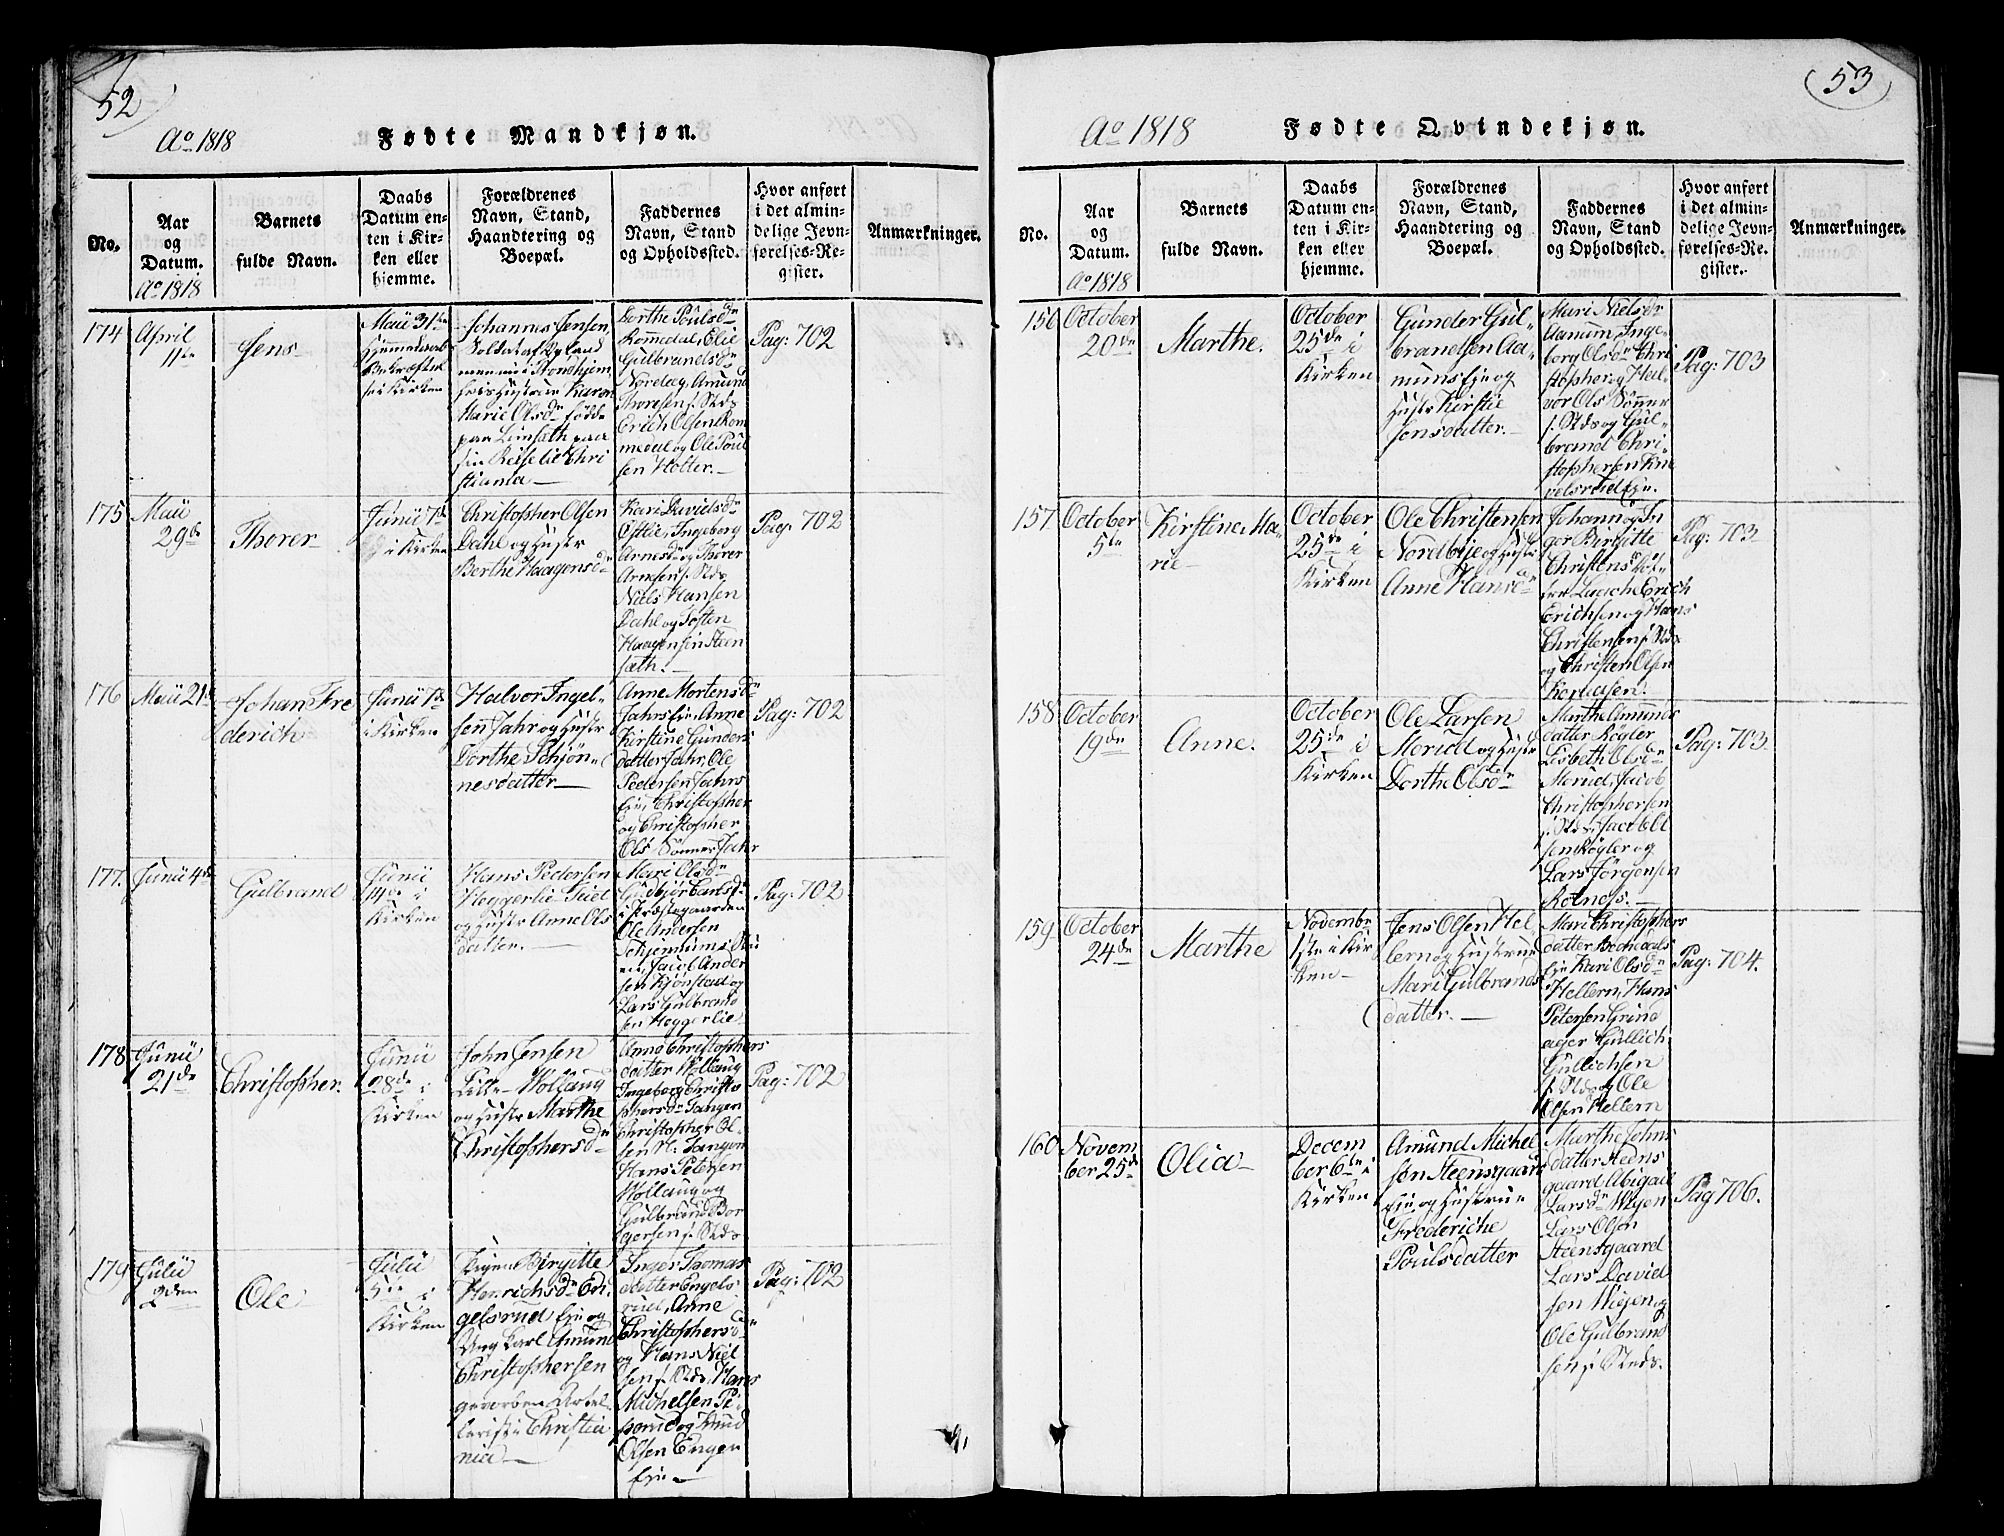 52
Ao 1818
Fødte Mandkjøn.
No.
Aar
og
Datum.
Ao 1818
Barnets
fulde Navn.
Daabs
Datum en-
ten i Kir-
ken eller
hjemme.
Forældrenes
Navn, Stand,
Haandtering og
Boepæl.
Faddernes
Navn, Stand
og Opholdssted.
Hvor anført
i det almin-
delige Jevn-
førelses-Re-
gister.
Anmærkninger.
174
April
11te
Jens
Maii 31te
Hjemmedaab
Bekræftet
i Kirken
Johannes Jensen
Soldat af
i Trondhjem
Hustrue Karen
Marie Olsdr fødde
paa
sin Reise til Chri
stiania
Dorthe Poulsdr
Rommedal, Olie
Gulbrandsdr
Noreløg, Amund
Thoresen f. Stds
Erich Olsen Rom
medal og Ole Poul
sen Holter.
Pag: 702
175
Maii
29de
Thorer
Junii 7de
i Kirken
Christopher Olsen
Dahl og Hustr
Berthe Haagensdr
Kari Davidsdr
Østlie, Ingeborg
Arnesdr og Thorer
Arnesen f. Stds
Niels Hansen
Dahl og Tosten
Haagensen Steen
sæth.
Pag: 702
176
Maii 21de
Johan Fre
derich
Junii 7de
i Kirken
Halvor Ingel-
sen Jahr og Hustr
Dorthe Schjøn-
nesdatter
Anne Mortensdr
Jahrs Eje, Anne
Kirstine Gunders
datter Jahr, Ole
Pedersen Jahrs
Eje, Christopher
og Christopher
Ols Sønner Jahr
Pag: 702
177.
Junii 4de
Gulbrand
Junii
14de i
Kirken
Hans Pedersen
Heggerlie
og Hustr Anne Ols
datter.
Mari Olsdr
i Præstegaarden
Ole Andersen
Jacob Ander
sen Kjønstad og
Lars Gulbrand
sen Heggerlie
Pag: 702
178
Junii
21de
Christopher.
Junii
28de i
Kirken
John Jensen
Lille Hollaug
og Hustr Marthe
Christophersdr
Anne Christophers
datter Hollaug
Ingeborg Christo
phersdr Tangen
Christopher Ol-
sen N. Tangen
Hans Petersen
Hollaug og
Gulbrand Bor
gersen f. Stds
Pag: 702
179
Julii
2den
Ole
Julii
5te i
Kirken
Pigen Birgitte
Henrichsdr En
gelsrud Eje og
Ung Karl Amund
Christophersen
Christia
nia
Inger Thomas
datter Engels
rud, Anne
Christophersdr
og Hans Niel
sen f. Stds, Hans
Michelsen
og Knud
Olsen Engen
Eje
Pag: 702
53
Ao 1818
Fødte Qvindekjøn.
No.
Aar
og
Datum.
Ao 1818
Barnets
fulde Navn.
Daabs
Datum en-
ten i Kir-
ken eller
hjemme.
Forældrenes
Navn, Stand,
Haandtering og
Boepæl.
Faddernes
Navn, Stand
og Opholdssted.
Hvor anført
i det almin-
delige Jevn-
førelses-Re-
gister.
Anmærkninger.
156
October
20de
Marthe.
October
25de i
Kirken
Gunder Gul-
brandsen Aa-
muns Eje og
Hustr Kirstie
Jensdatter.
Mari Nielsdr
Aamun, Inge-
borg Olsdr Chri
stopher og Hal-
vor Ols Sønner
f. Stds og Gul-
brand Chri-
stophersen Kne
velsrud Eje.
Pag: 703
157.
October
5te
Kirstine Ma-
rie
October
25de i
Kirken
Ole Christensen
Nordbye og Hustr
Anne Hansdr
Johann og In
ger Birgitte
Christens Døt-
tre Lasche Erich
Erichsen og Hans
Christensen f. Stds
og Christen Olsen
Pag: 703
158
October
19de
Anne.
October
25de i
Kirken
Ole Larsen
Morud og Hustr
Dorthe Olsdr
Marthe Amunds
datter Kogler
Lisbeth Olsdr
Morud, Jacob
Christophersen
f. Stds, Jacob El
sen Kogler og
Lars Jørgensen
Rotnæs.
Pag: 703
159
October
24de
Marthe
Novembr
1ste i Kir
ken
Jens Olsen Hel
lern og Hustrue
Mari Gulbrands
datter.
Mari Christophers
datter Bechedals
Eje Kari Olsdr
Hellern, Hans
Petersen Grind
ager Gullich
Gullichsen
f. Stds og Ole
Olsen Hellern
Pag: 704.
160
Novem
ber 25de
Olia
Decem
ber 6te i
Kirken
Amund Michel
sen Steensgaard
Eje og Hustrue
Frederiche
Poulsdatter
Marthe Johns
datter Steens
gaard Abigael
Larsdr Wigen
Lars Olsen
Steensgaard
Lars David
sen Wigen og
Ole Gulbrand
sen f. Steds.
Pag 706.